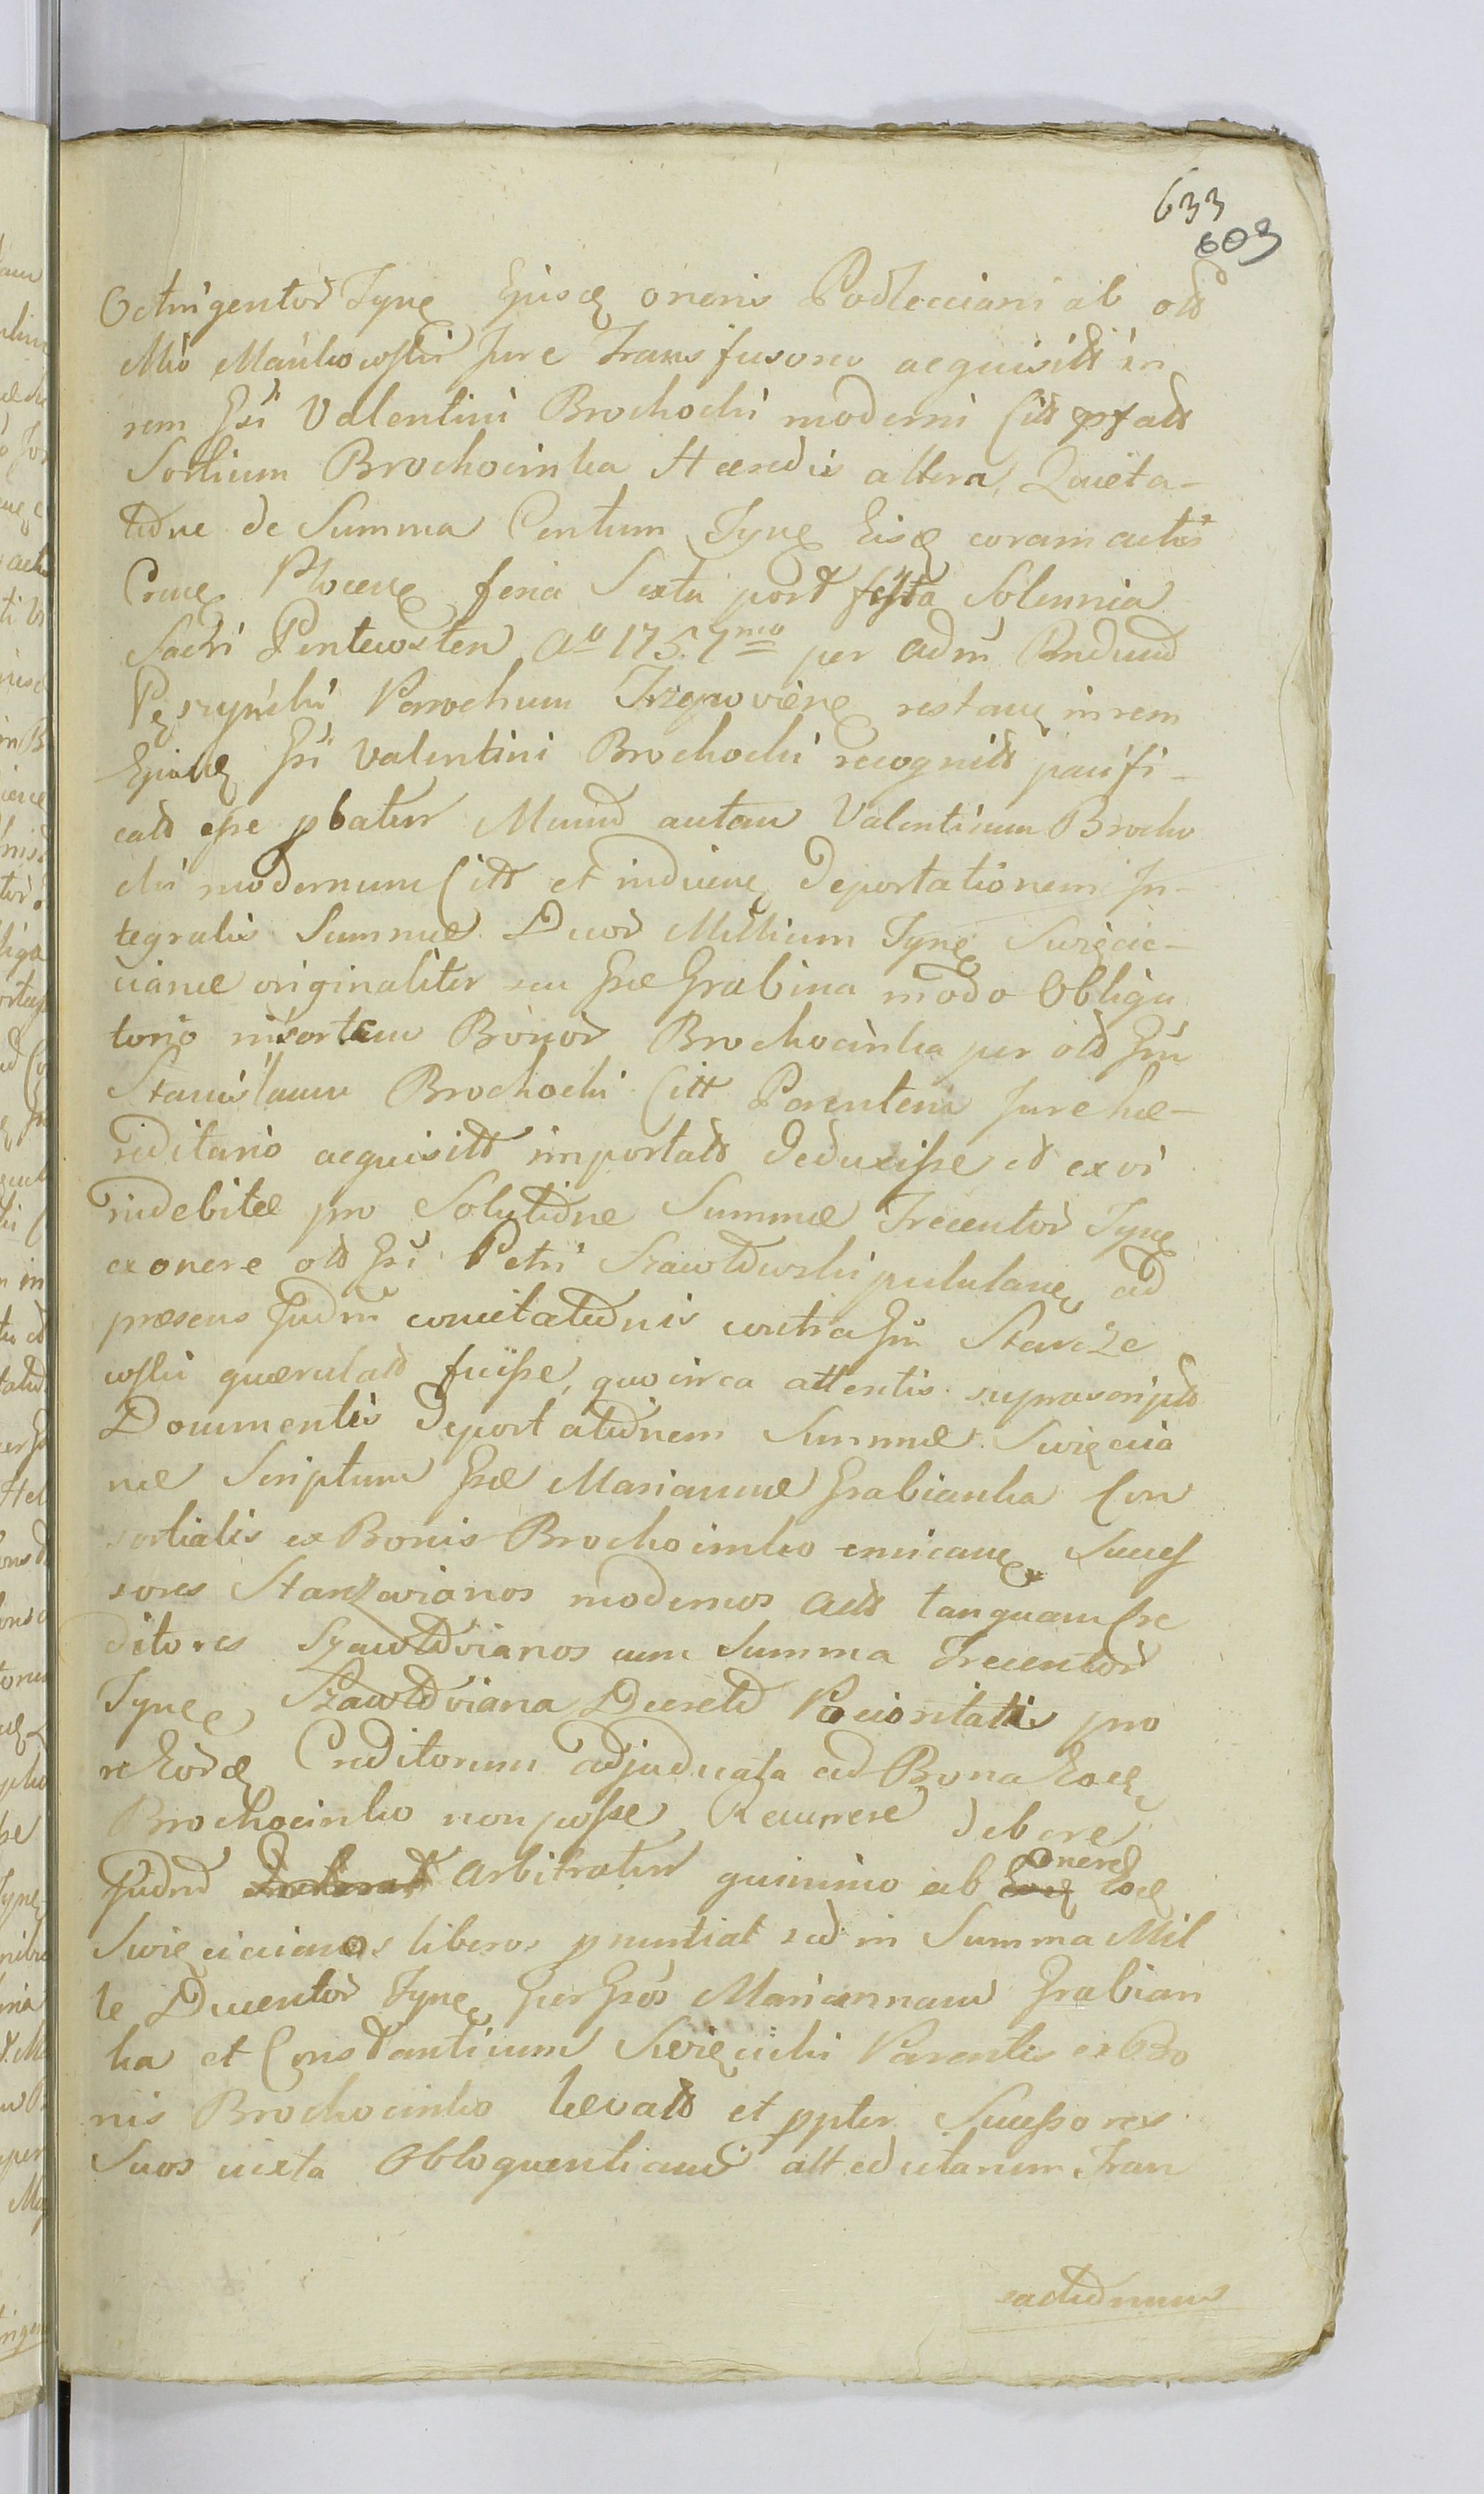 633
603
Octingentor Tyne Ejusd oneris Podlecciani ab olt
Mco Mańkowski Jure Transfusorio acquisitt in
rem Gsi Valentini Brochocki moderni Citt pfatt
Sortium Brochocinka Hæredis altera, Quieta-
tione de Summa Centum Tyne Eisd coram actis
Crue Plocene feria Sexta post festa Solennia
Sacri Pentecosten Ao 1757mo per adm Rndum
Pęszyński Parochum Trzepoviene restane in rem
Ejusd Gsi Valentini Brochocki recognitt pacifi-
catt esse pbatur Mcum autem Valentinum Brocho
cki modernum Citt et inducene Deportationem In-
tegralis Summæ Duor Millium Tyne Swięcic-
cianæ originaliter seu Gsæ Grabina modo Obliga
torio in sortem Bonor Brochocinka per olt Gsm
Stanislaum Brochocki Citt Parentem Jure hæ-
reditario acquisitt importatt deduxisse et ex vi
indebitæ pro Solutione Summæ Trecentor Tyne
ex onere olt Gsi Petri Szawłowski pululane ad
præsens Judm concitationis contra Gsm Starże
wski quærulatt fuisse, quocirca attentis suprascriptt
Documentis Deportationem Summæ Swięcicia
næ Scriptum Gsæ Mariannæ Grabianka Con
sortialis ex Bonis Brochocinko emicane Succes
sores Starzavianos modernos Actt tanquam Cre
ditores Szawłovianos cum Summa Trecentor
Tyne Szawłoviana Decreto Pocioritatis pro
re Eord Creditorum adjudicata ad Bona Ead
Brochocinko non posse Recurrere debere
Judm arbitratur quinimo ab Onere Eod
Swięcicianos liberos pnuntiat sed in Summa Mil
le Ducentor Tyne per Gsos Mariannam Grabian
ka et Constantinum Swięcicki Parentes ex Bo
nis Brochocinko levatt et ppter Successores
Suos iuxta Obloquentiam alt ed utarum Tran
sactionum